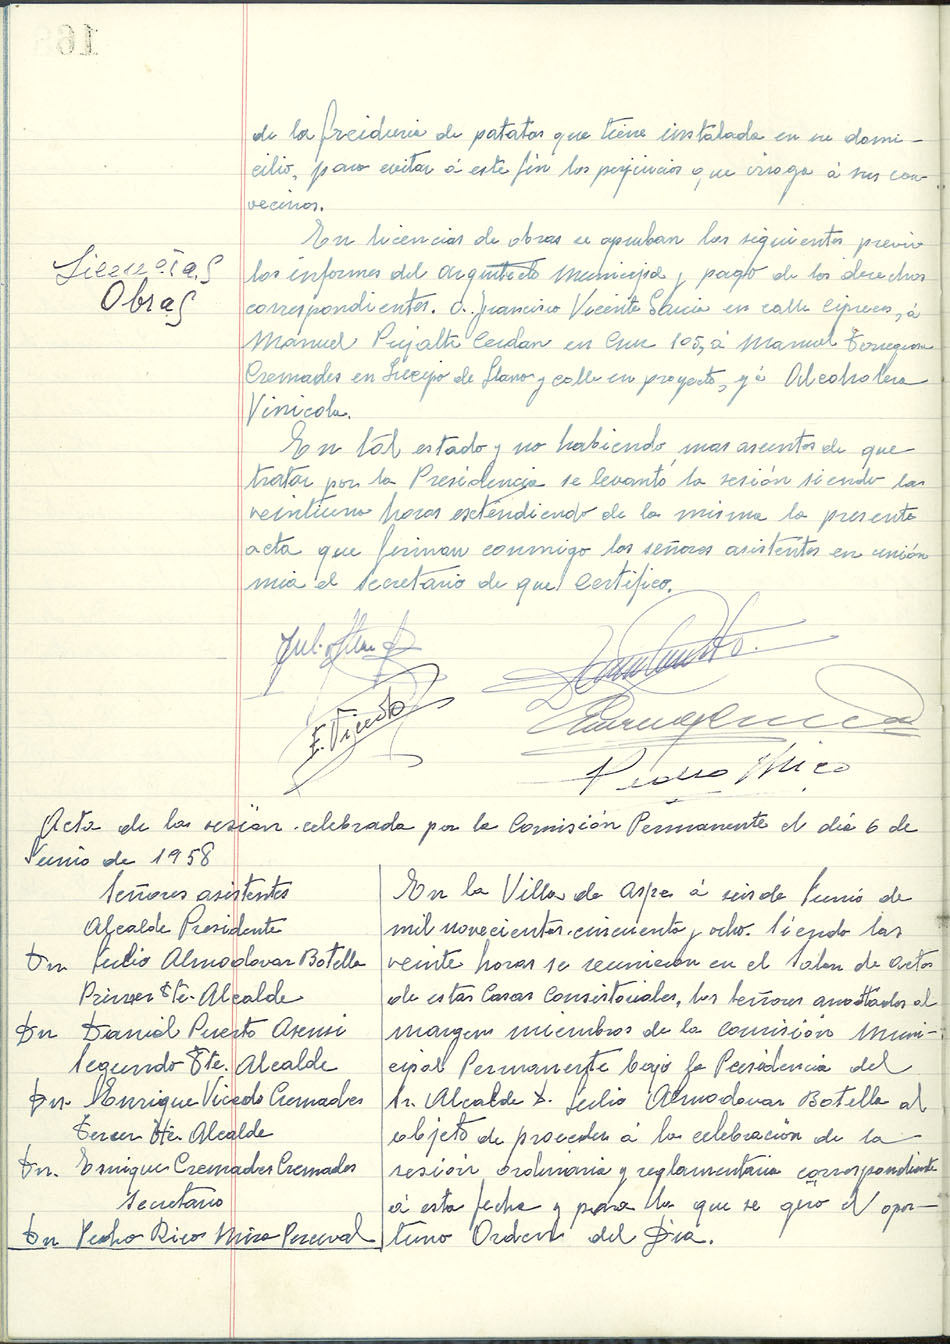 de la freiduria de patatas que tiene instalada en su domi-
cilio, para evitar á este fin los perjuicios que irroga á sus con-
vecinos.
Licencias
Obras
En licencias de obras se aprueban las siguientes previo
los informes del arquitecto municipal y pago de los derechos
correspondientes. a Francisco Vicente Garcia en calle Cipreses, á
Manuel Pujalte Cerdan en Cruz 105, á Manuel Torregrosa
Cremades en Liceijo de Llano y calle en proyecto, y á Alcoholera
Vinicola.
En tál estado y no habiendo mas asuntos de que
tratar por la Presidencia se levantó la sesión siendo las
veintiuna horas extendiendo de la misma la presente
acta que firman conmigo los señores asistentes en unión
mia el secretario de que certifico.
E. Vicedo
Pedro Rico
Acta de la sesión celebrada por la Comisión Permanente el día 6 de
Junio de 1958
Señores asistentes
Alcalde Presidente
Dn Julio Almodovar Botella
Primer Tte. Alcalde
Dn Daniel Puerto Asensi
Segundo Tte. Alcalde
Dn. Enrique Vicedo Cremades
Tercer Tte. Alcalde
Dn. Enrique Cremades Cremades
Secretario
Dn Pedro Rico Mira Perceval
En la Villa de Aspe á seis de Junio de
mil novecientos cincuenta y ocho. Siendo las
veinte horas se reunieron en el Salon de actos
de estas Casas Consistoriales, los señores anotados al
margen miembros de la Comisión Muni-
cipal Permanente bajo la Presidencia del
Sr. Alcalde D. Julio Almodovar Botella al
objeto de proceder á la celebración de la
sesión ordinaria y reglamentaria correspondiente
á esta fecha y para la que se giró el opor-
tuno Orden del Dia.